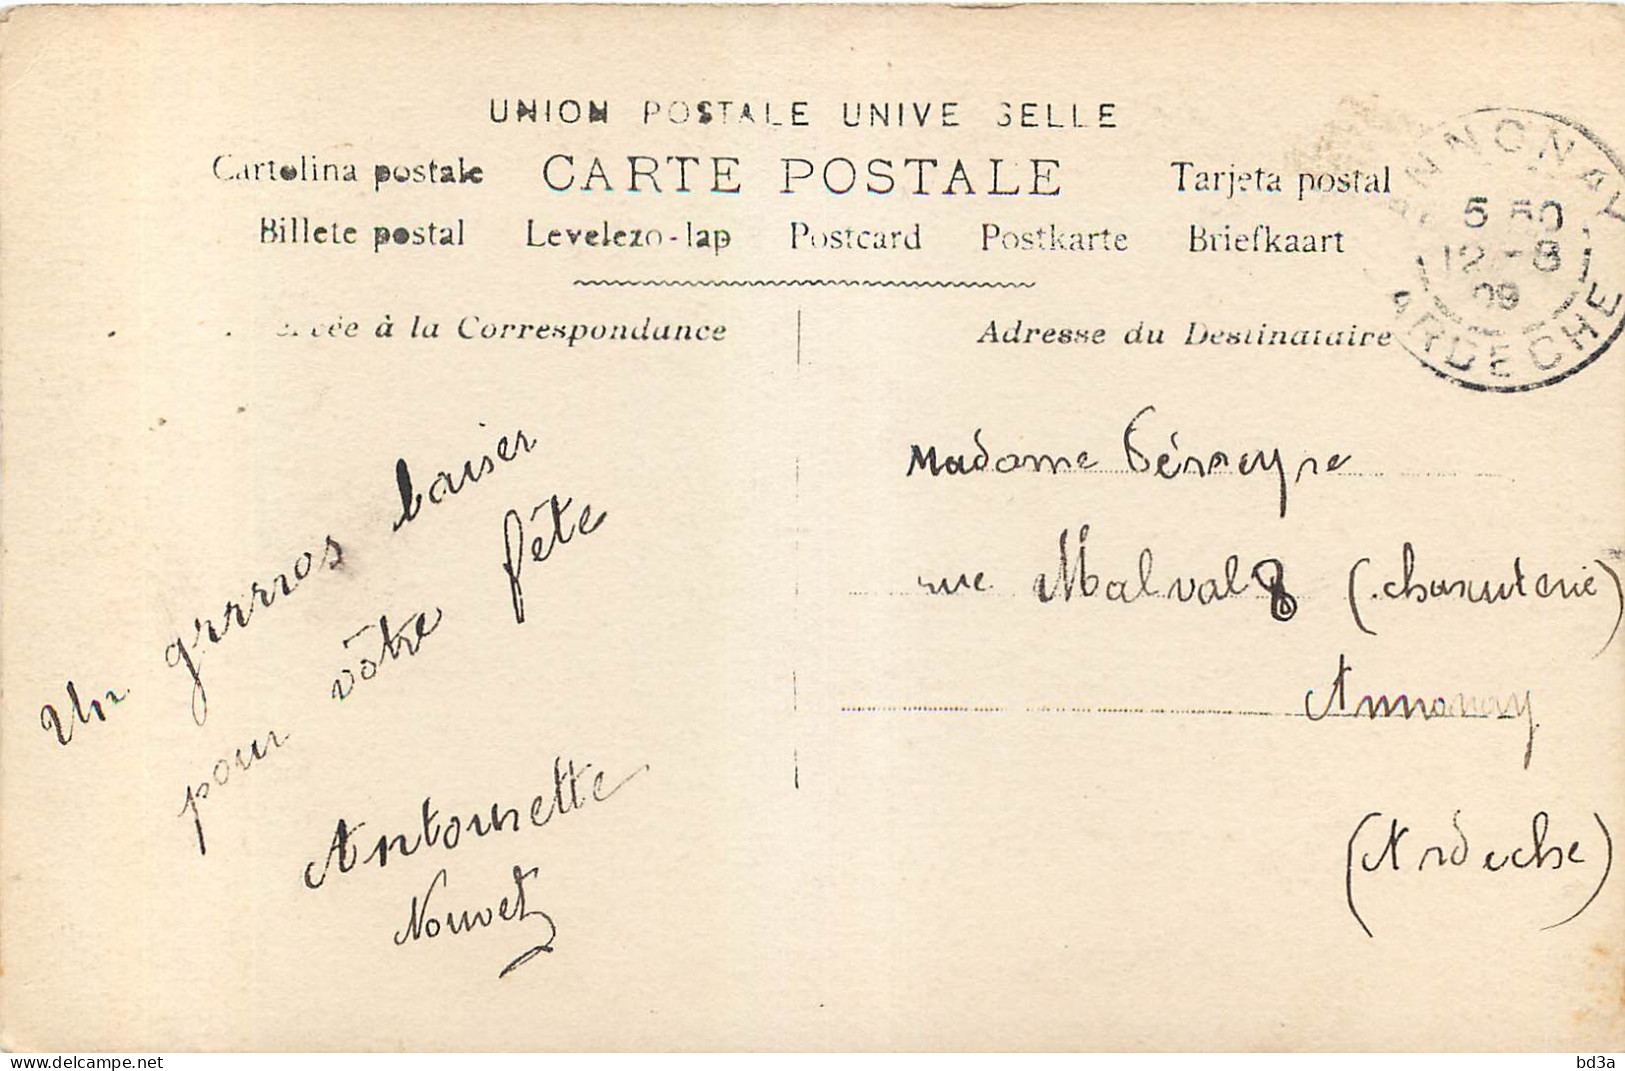 UNION POSTALE UNIVE SELLE
Cartolina postale CARTE POSTALE Tarjeta postal
Billete postal Levelezo-lap Postcard Postkarte Briefkaart
à la Correspondance
Adresse du Destinataire
ANNONAY
5 50
12 - 8
09
ARDECHE
Un grrrros baiser
pour vôtre fête
Antoinette
Nouvet
Madame
rue Malval 8 (charcuterie)
Annonay
(Ardèche)
www.delcampe.net
bd3a